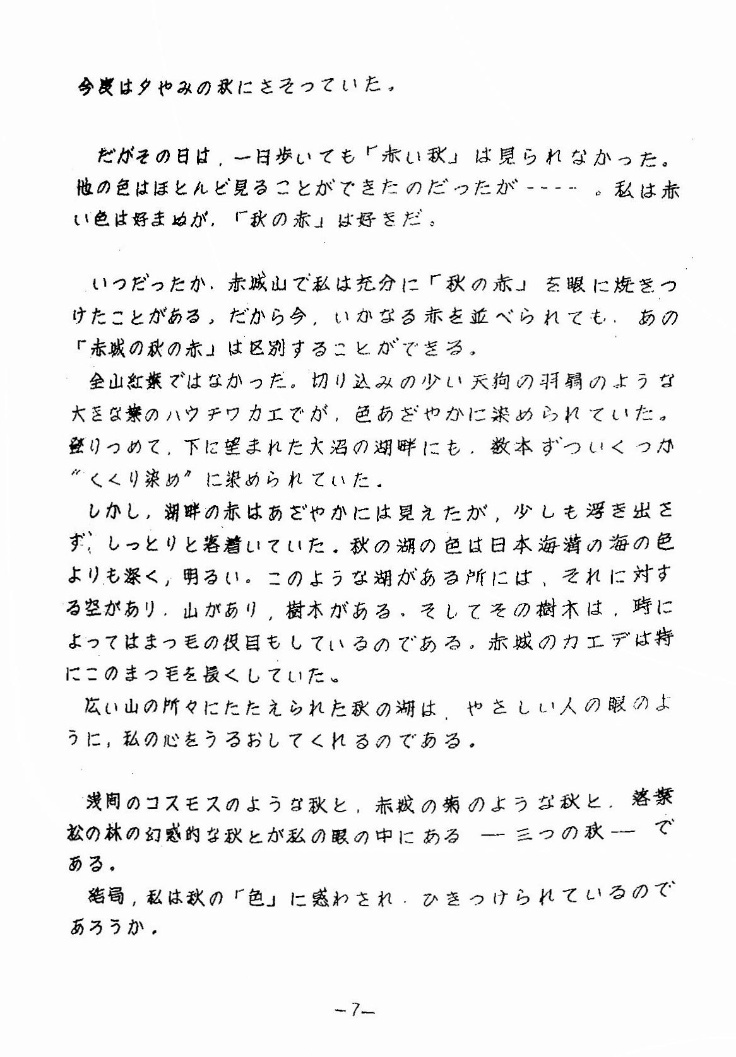 今度は夕やみの秋にさそっていた。
だがその日は、一日歩いても「赤い秋」は見られなかった。
他の色はほとんど見ることができたのだったが----。私は赤
い色は好まぬが、「秋の赤」は好きだ。
いつだったか、赤城山で私は充分に「秋の赤」を眼に焼きつ
けたことがある。だから今、いかなる赤を並べられても、あの
「赤城の秋の赤」は区別することができる。
全山紅葉ではなかった。切り込みの少い天狗の羽扇のような
大きな葉のハウチワカエデが、色あざやかに染められていた。
登りつめて、下に望まれた大沼の湖畔にも、数本ずついくつか
〝くくり染め〟に染められていた。
しかし、湖畔の赤はあざやかには見えたが、少しも浮き出さ
ず、しっとりと落着いていた。秋の湖の色は日本海溝の海の色
よりも深く、明るい。このような湖がある所には、それに対す
る空があり、山があり、樹木がある。そしてその樹木は、時に
よってはまつ毛の役目もしているのである。赤城のカエデは特
にこのまつ毛を長くしていた。
広い山の所々にたたえられた秋の湖は、やさしい人の眼のよ
うに、私の心をうるおしてくれるのである。
浅間のコスモスのような秋と、赤城の菊のような秋と、落葉
松の林の幻惑的な秋とが私の眼の中にある ―三つの秋― で
ある。
結局、私は秋の「色」に惑わされ、ひきつけられているので
あろうか。
－7－